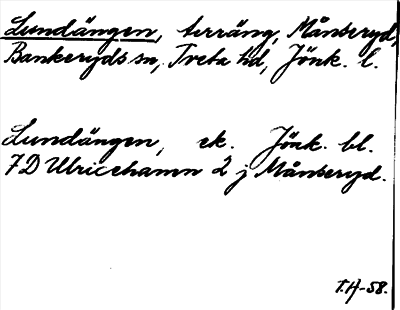 Lundängen, terräng, Månseryd,
Bankeryds sn, Tveta hd, Jönk. l.
Lundängen, ek. Jönk. bl.
7D Ulricehamn 2 j Månseryd.
T.H-58.